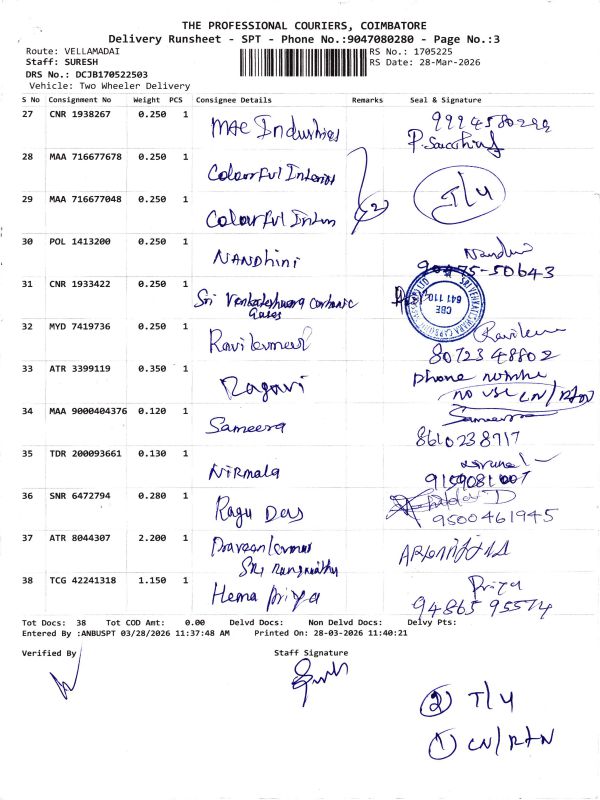 THE PROFESSIONAL COURIERS, COIMBATORE
Delivery Runsheet - SPT - Phone No.:9047080280 - Page No.:3
Route: VELLAMADAI
RS No.: 1705225
Staff: SURESH
RS Date: 28-Mar-2026
DRS No.: DCJB170522503
Vehicle: Two Wheeler Delivery
S No Consignment No Weight PCS Consignee Details Remarks Seal & Signature
27 CNR 1938267 0.250 1 Mac Industries
28 MAA 716677678 0.250 1 Colourful Interios T/4
29 MAA 716677048 0.250 1 Colourful Intern (2)
30 POL 1413200 0.250 1 NANDhini 90475-50643
31 CNR 1933422 0.250 1 Sri Venkateshwara Carbonic Gases
SRI VENKATESHWARA CBE 641 110
32 MYD 7419736 0.250 1 Ravikumar Ravikumar
8072348802
33 ATR 3399119 0.350 1 Ragavi phone
no use CN/RTN
34 MAA 9000404376 0.120 1 Sameera Sameera
8610238717
35 TDR 200093661 0.130 1 NiRmala
9159081007
36 SNR 6472794 0.280 1 Ragu Das
9500461945
37 ATR 8044307 2.200 1 Praveen kumar
Sri
38 TCG 42241318 1.150 1 Hema priya Priya
94865 95574
Tot Docs: 38 Tot COD Amt: 0.00 Delvd Docs: Non Delvd Docs: Delvy Pts:
Entered By :ANBUSPT 03/28/2026 11:37:48 AM Printed On: 28-03-2026 11:40:21
Verified By Staff Signature
(2) T/4
(1) CN/RTN